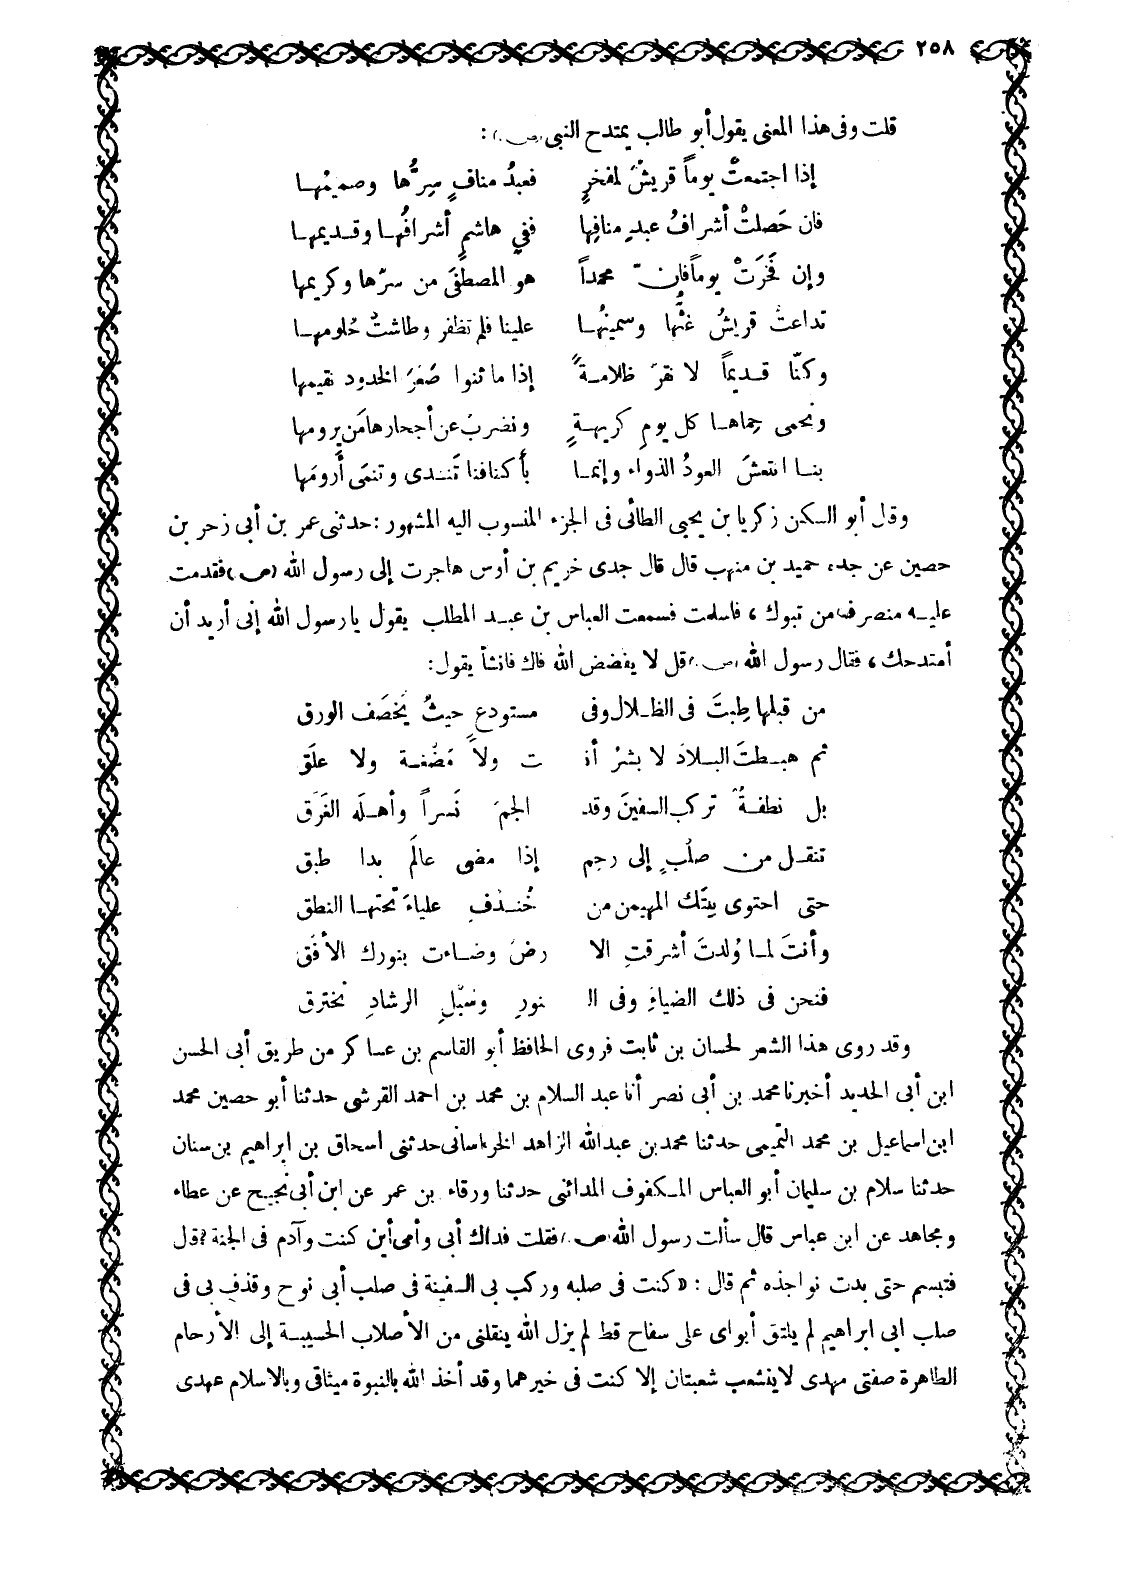 ٢٥٨
قلت وفى هذا المعنى يقول أبو طالب يمتدح النبى (ص):
إذا اجتمعتْ يوماً قريشٌ لمفخرٍ فعبدُ منافٍ سِرُّها وصميمُهـا
فان حَصلتْ أشرافُ عبدِ منافِها ففي هاشمٍ أشرافُهـا وقـديمهـا
وإن فَخَرَتْ يوماً فانّ محمداً هو المصطفَى من سرّها وكريمها
تداعتْ قريشُ غثُّها وسمينُهـا علينا فلم تظفر وطاشتْ حُلومهـا
وكنّا قـديماً لا نقرّ ظلامـةً إذا ما ثنوا صُعَرَ الخدود نقيمها
ونحمى حِماهـا كل يومِ كريهـةٍ ونضربُ عن أجحارها مَن يرومها
بنـا انتعشَ العودُ الذواء وإنمـا بأكنافنا تَنـدى وتنمَى أَرومَها
وقال أبو السكن زكريا بن يحيى الطائى فى الجزء المنسوب اليه المشهور: حدثنى عمر بن أبى زحر بن
حصين عن جده حميد بن منهب قال قال جدى خريم بن أوس هاجرت إلى رسول الله (ص) فقدمت
عليـه منصرفه من تبوك ، فاسلمت فسمعت العباس بن عبـد المطلب يقول يا رسول الله إنى أريد أن
أمتدحك ، فقال رسول الله (ص) قل لا يفضض الله فاك فانشأ يقول:
من قبلها طِبتَ فى الظـلال وفى مستودعٍ حيثُ يَخصَف الورق
ثم هبـطتَ البـلادَ لا بشرٌ أنـ ـت ولا مَضُغـة ولا علَق
بل نطفـةٌ تركب السفينَ وقد الجمَ نَسراً وأهـلَه الغَرَق
تنقـل من صلُبٍ إلى رحِم إذا مضى عالَم بدا طبق
حتى احتوى بيتَك المهيمن من خُنـذفِ علياءَ تحتهـا النطق
وأنتَ لمـا وُلدتَ أشرقتِ الا رضُ وضـاءت بنورك الأفَق
فنحن فى ذلك الضياءِ وفى الـ ـنورِ وسُبُلِ الرشادِ نخترق
وقد روى هذا الشعر لحسان بن ثابت فروى الحافظ أبو القاسم بن عساكر من طريق أبى الحسن
ابن أبى الحديد أخبرنا محمد بن أبى نصر أنا عبد السلام بن محمد بن احمد القرشى حدثنا أبو حصين محمد
ابن اسماعيل بن محمد التميمى حدثنا محمد بن عبدالله الزاهد الخراسانى حدثنى اسحاق بن ابراهيم بن سنان
حدثنا سلام بن سليمان أبو العباس المكفوف المدائنى حدثنا ورقاء بن عمر عن ابن أبى نجيح عن عطاء
ومجاهد عن ابن عباس قال سألت رسول الله (ص) فقلت فداك أبى وأمى أين كنت وآدم فى الجنة ؟ قال
فتبسم حتى بدت نواجذه ثم قال : «كنت فى صلبه وركب بى السفينة فى صلب أبى نوح وقذف بى فى
صلب ابى ابراهيم لم يلتق أبواى على سفاح قط لم يزل الله ينقلنى من الأصلاب الحسيبة إلى الأرحام
الطاهرة صفتى مهدى لا ينشعب شعبتان إلا كنت فى خيرهما وقد أخذ الله بالنبوة ميثاقى وبالاسلام عهدى